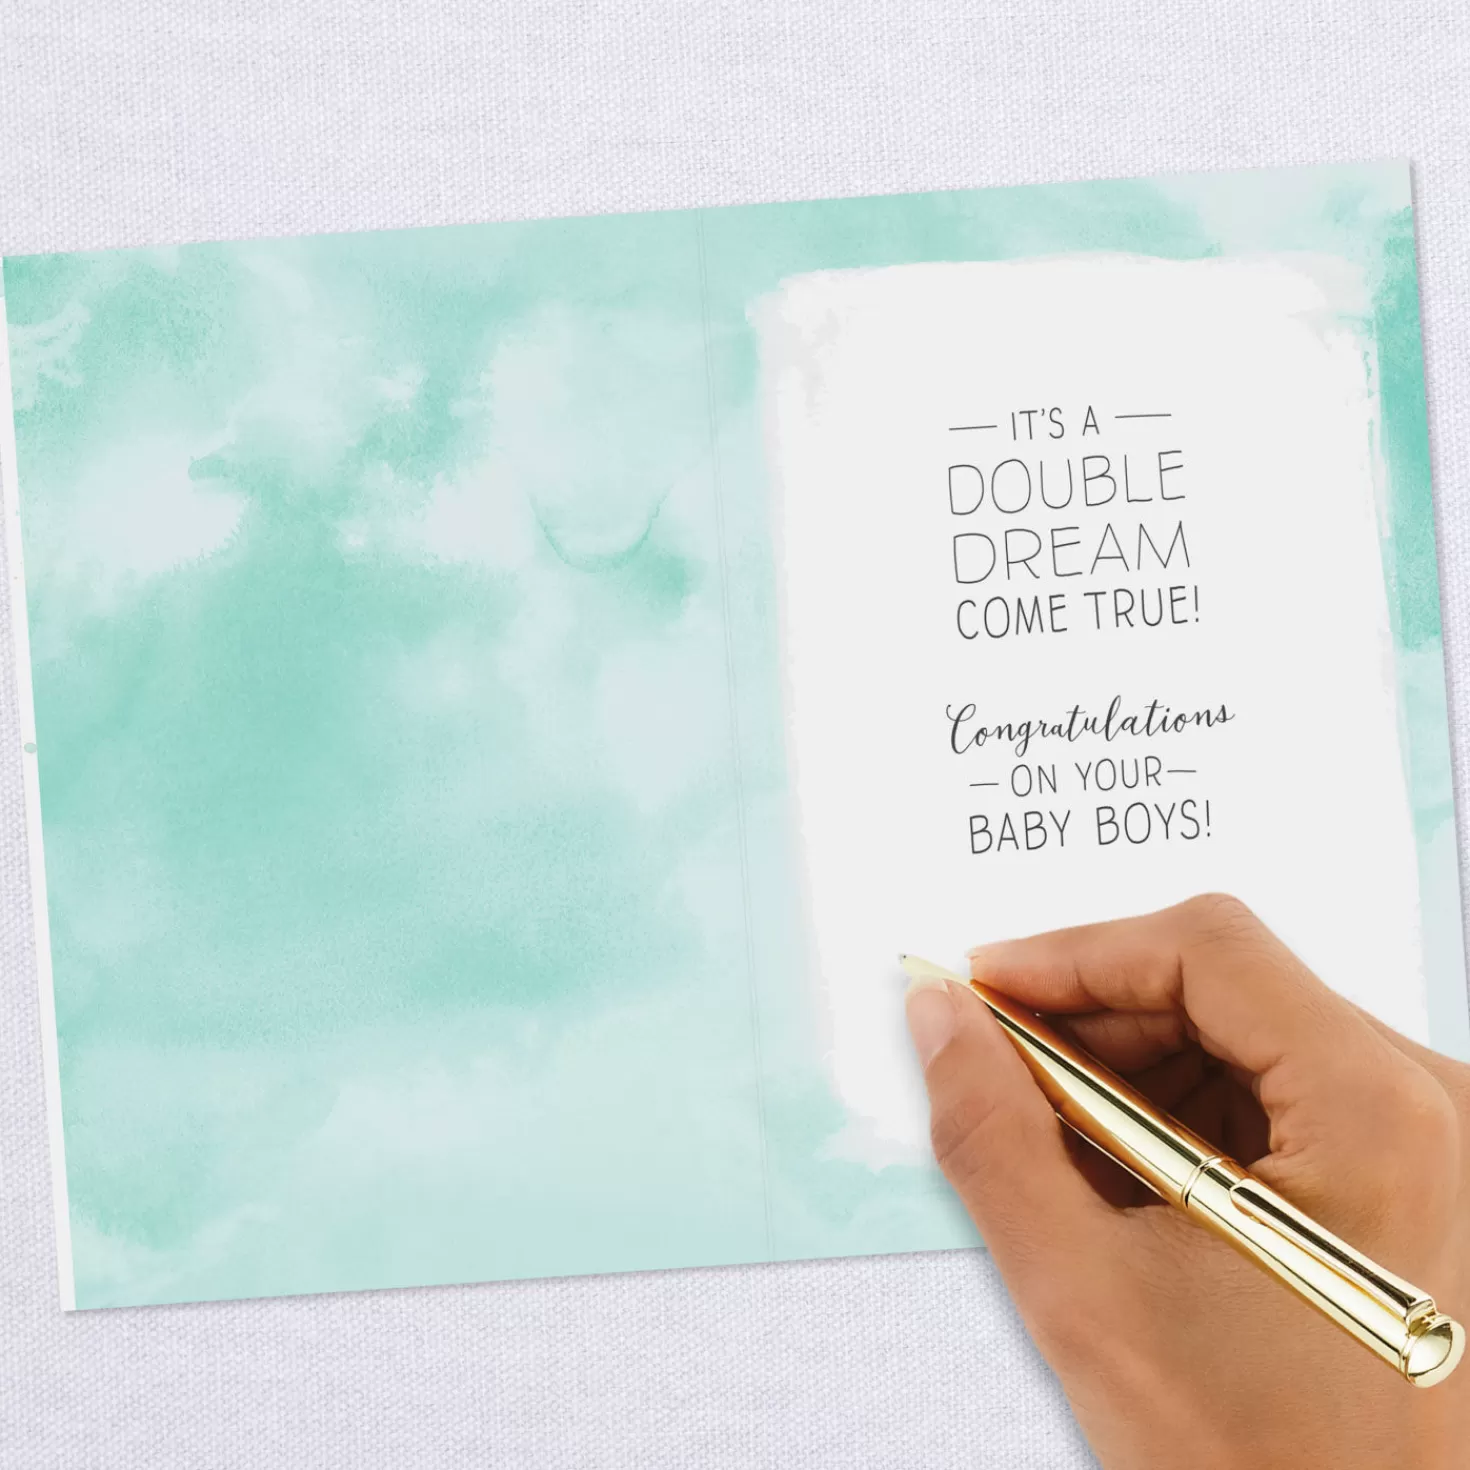 — IT'S A —
DOUBLE
DREAM
COME TRUE!
Congratulations
— ON YOUR —
BABY BOYS!